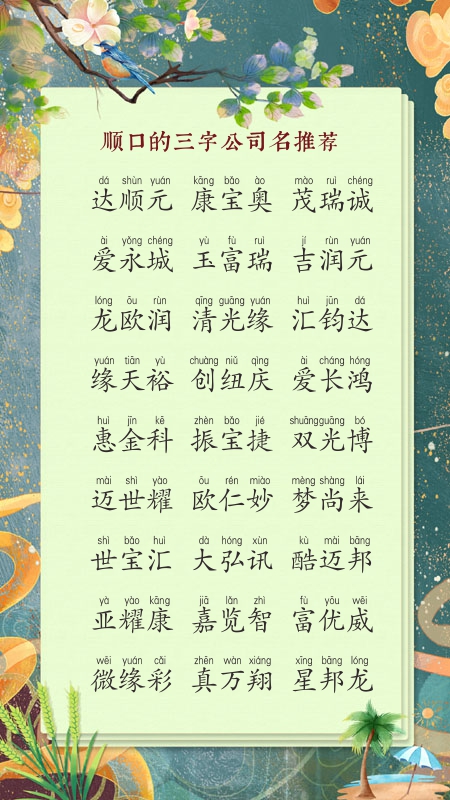 顺口的三字公司名推荐
dá shùn yuán kāng bǎo ào mào ruì chéng
达顺元 康宝奥 茂瑞诚
ài yǒng chéng yù fù ruì jí rùn yuán
爱永城 玉富瑞 吉润元
lóng ōu rùn qīng guāng yuán huì jūn dá
龙欧润 清光缘 汇钧达
yuán tiān yù chuàng niǔ qìng ài cháng hóng
缘天裕 创纽庆 爱长鸿
huì jīn kē zhèn bǎo jié shuāngguāng bó
惠金科 振宝捷 双光博
mài shì yào ōu rén miào mèng shàng lái
迈世耀 欧仁妙 梦尚来
shì bǎo huì dà hóng xùn kù mài bāng
世宝汇 大弘讯 酷迈邦
yà yào kāng jiā lǎn zhì fù yōu wēi
亚耀康 嘉览智 富优威
wēi yuán cǎi zhēn wàn xiáng xīng bāng lóng
微缘彩 真万翔 星邦龙